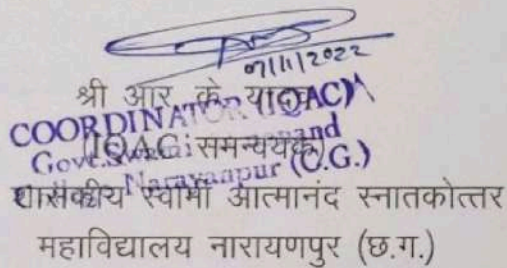 07/11/2022
श्री आर. के. यादव
COORDINATOR (IQAC)
(IQAC समन्वयक)
Govt. Swami Atmanand
Narayanpur (C.G.)
शासकीय स्वामी आत्मानंद स्नातकोत्तर
महाविद्यालय नारायणपुर (छ.ग.)